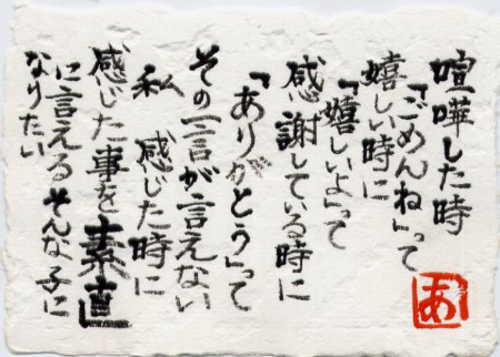 喧嘩した時
「ごめんね」って
嬉しい時に
「嬉しいよ」って
感謝している時に
「ありがとう」って
その一言が言えない
私 感じた時に
感じた事を素直
に言える そんな子に
なりたい
あ